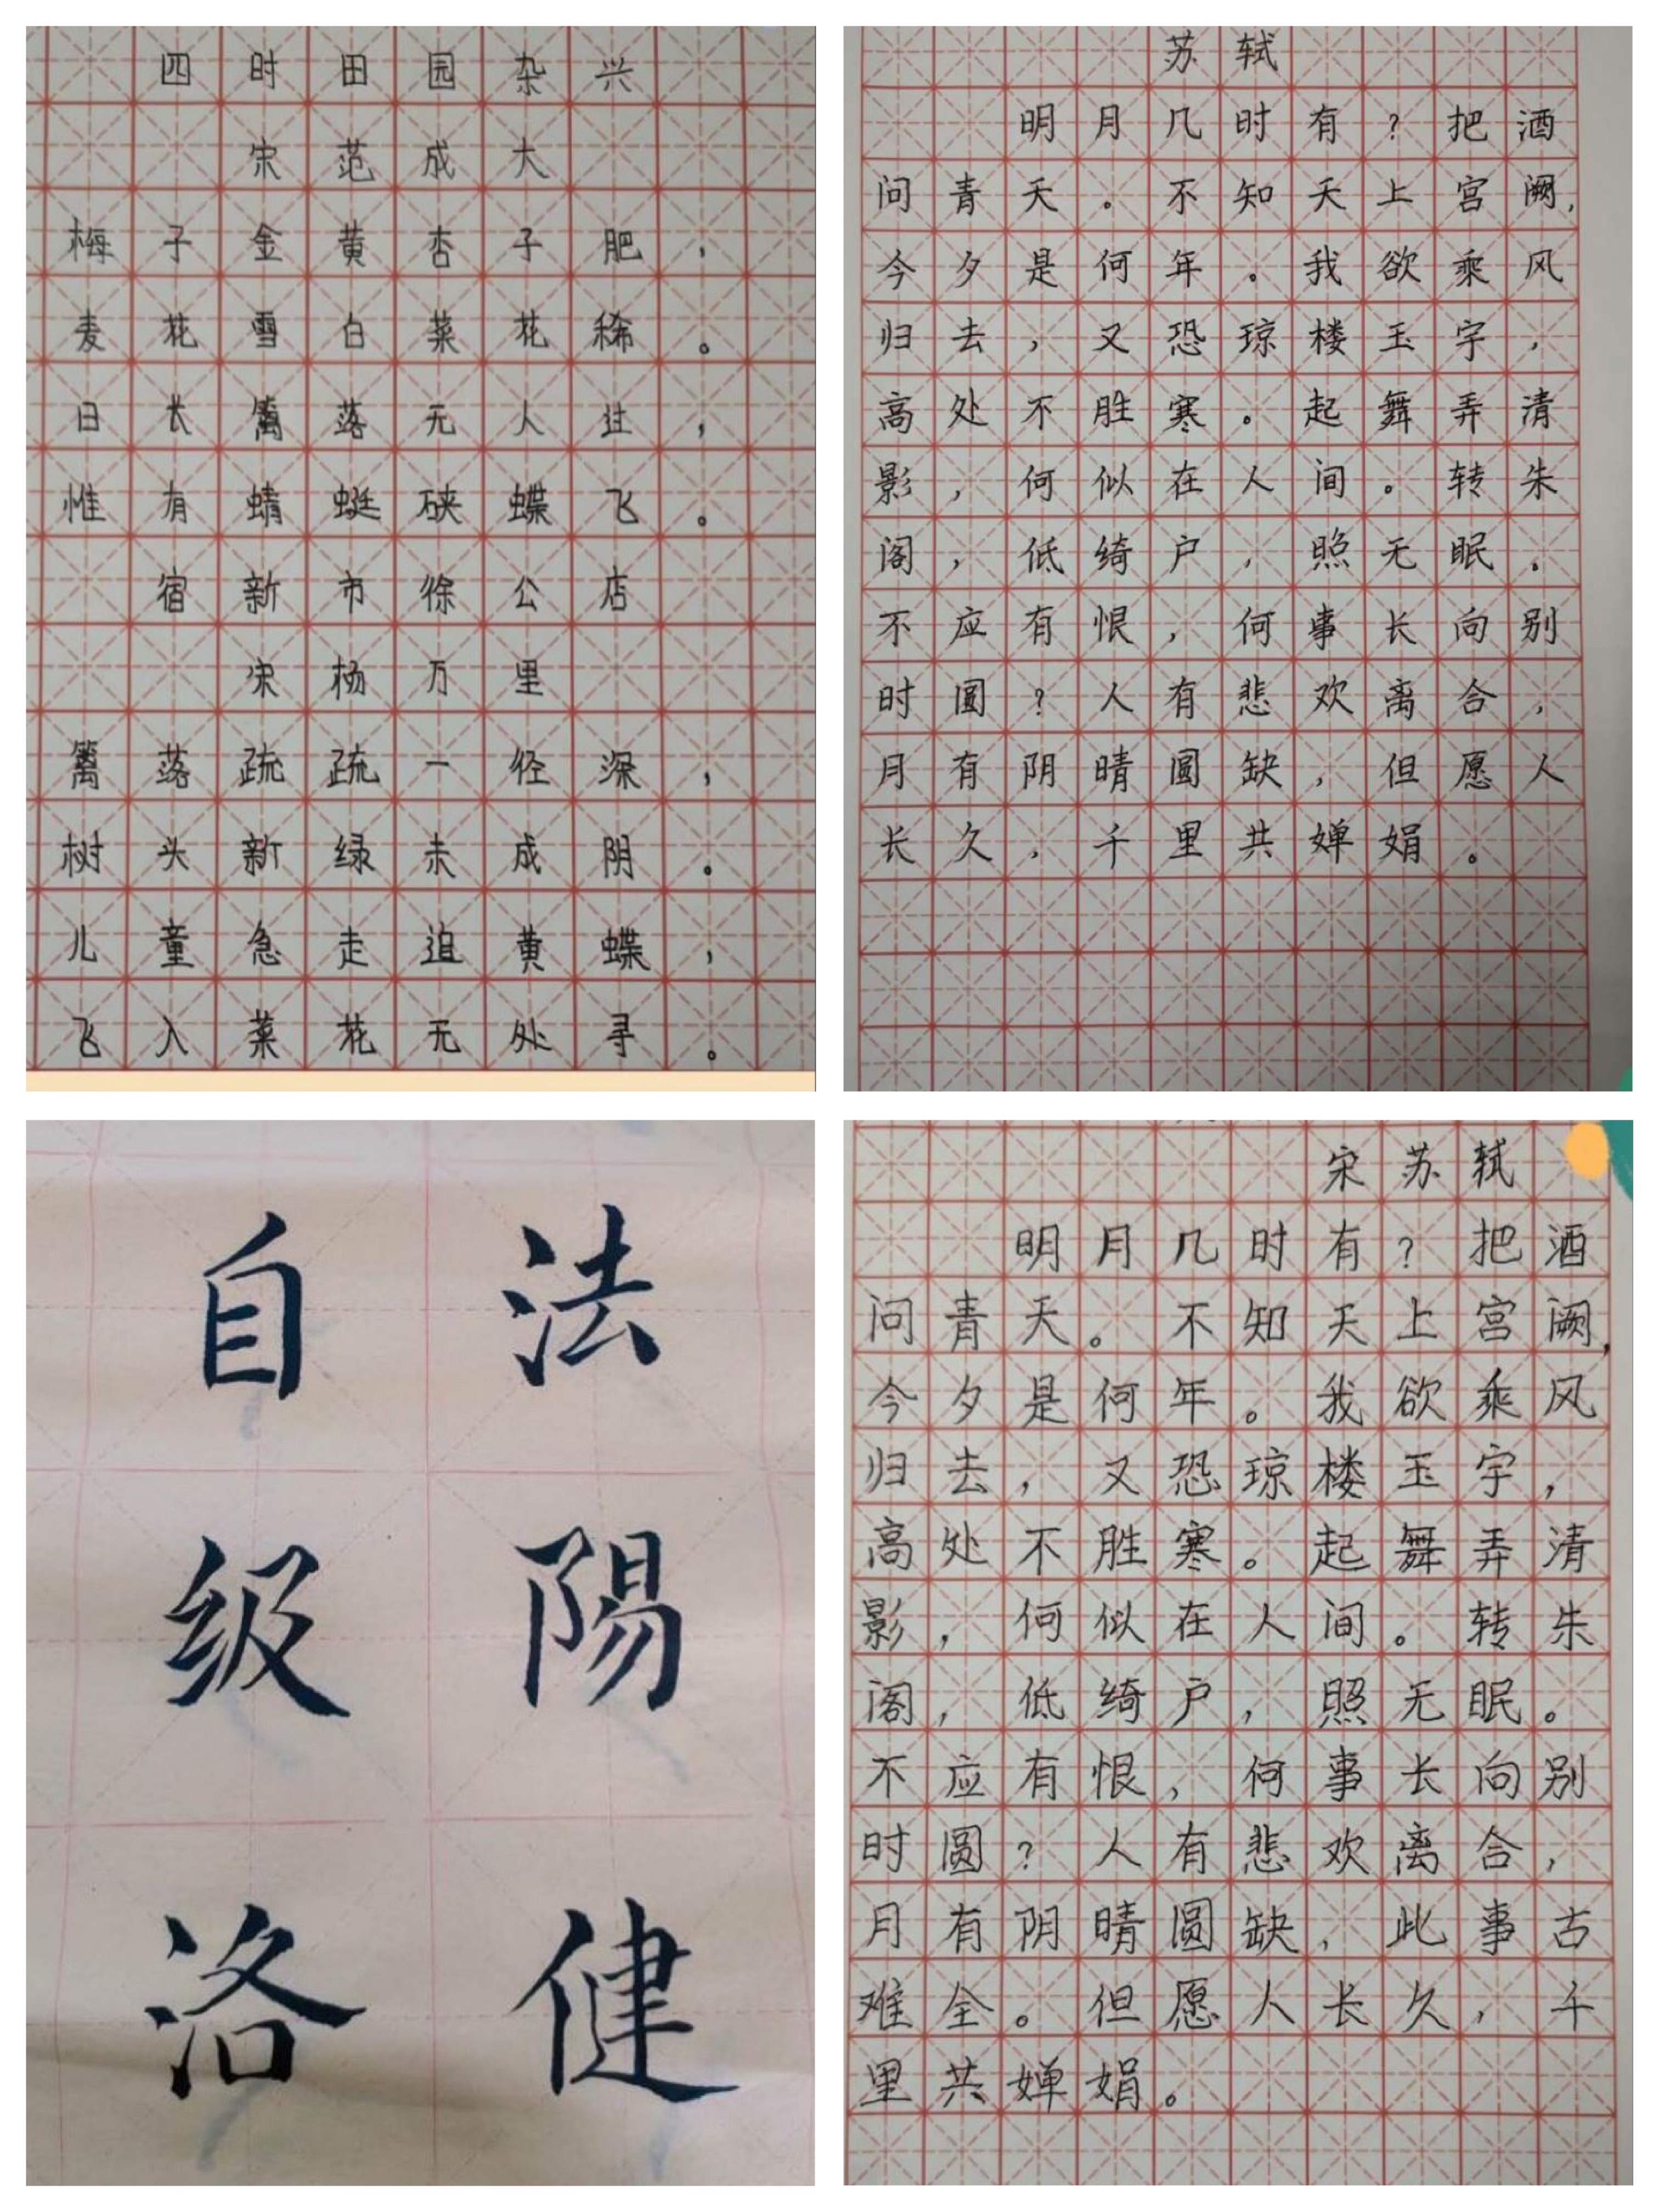 四时田园杂兴
宋范成大
梅子金黄杏子肥，
麦花雪白菜花稀。
日长篱落无人过，
惟有蜻蜓蛱蝶飞。
宿新市徐公店
宋杨万里
篱落疏疏一径深，
树头新绿未成阴。
儿童急走追黄蝶，
飞入菜花无处寻。
苏轼
明月几时有？把酒
问青天。不知天上宫阙，
今夕是何年。我欲乘风
归去，又恐琼楼玉宇，
高处不胜寒。起舞弄清
影，何似在人间。转朱
阁，低绮户，照无眠。
不应有恨，何事长向别
时圆？人有悲欢离合，
月有阴晴圆缺，但愿人
长久，千里共婵娟。
自法
级陽
洛健
宋苏轼
明月几时有？把酒
问青天。不知天上宫阙，
今夕是何年。我欲乘风
归去，又恐琼楼玉宇，
高处不胜寒。起舞弄清
影，何似在人间。转朱
阁，低绮户，照无眠。
不应有恨，何事长向别
时圆？人有悲欢离合，
月有阴晴圆缺，此事古
难全。但愿人长久，千
里共婵娟。